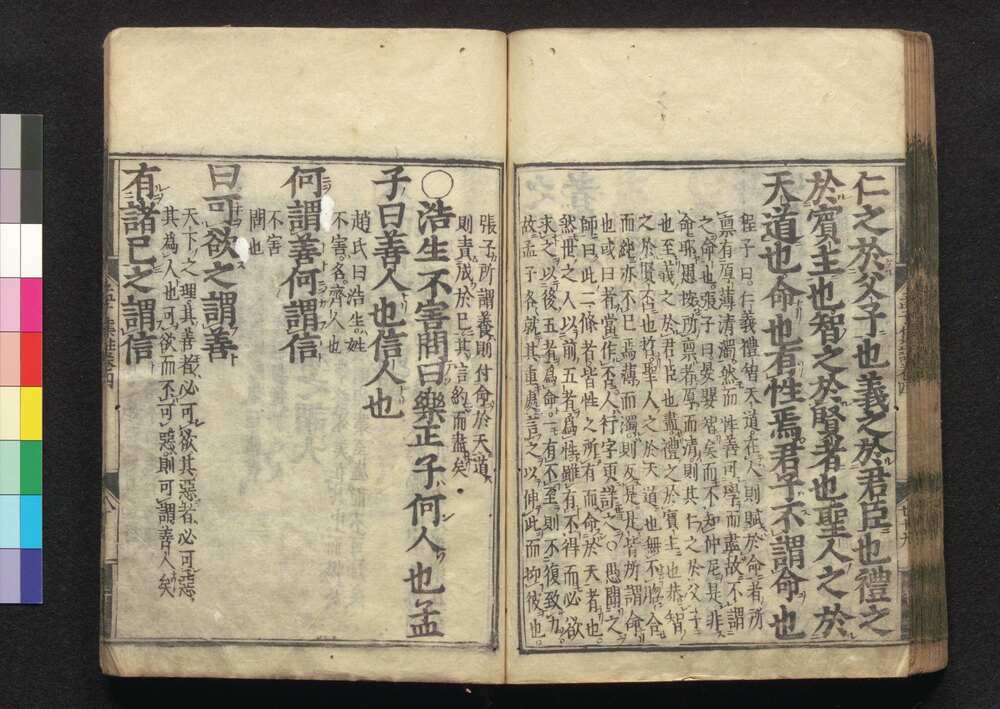 仁之於父子也義之於君臣也禮之
於賓主也智之於賢者也聖人之於
天道也命也有性焉君子不謂命也
程子曰仁義禮智天道在人則賦於命者所
禀有厚薄清濁然而性善可學而盡故不謂
之命也張子曰晏嬰智矣而不知仲尼是非
命耶愚按所禀者厚而清則其仁之於父子
也至義之於君臣也盡禮之於賓主也恭智
之於賢否也哲聖人之於天道也無不脗合
而純亦不已焉薄而濁則反是是皆所謂命
也或曰者當作否人衍字更詳之〇愚聞之
師曰此二條者皆性之所有而命於天者也
然世之人以前五者爲性雖有不得而必欲
求之以後五者爲命一有不至則不復致力
故孟子各就其重處言之以伸此而抑彼也
張子所謂養則付命於天道
則責成於已其言約而盡矣
〇浩生不害問曰樂正子何人也孟
子曰善人也信人也
趙氏曰浩生姓
不害名齊人也
何謂善何謂信
不害
問也
曰可欲之謂善
天下之理其善者必可欲其惡者必可惡
其為人也可欲而不可惡則可謂善人矣
有諸已之謂信